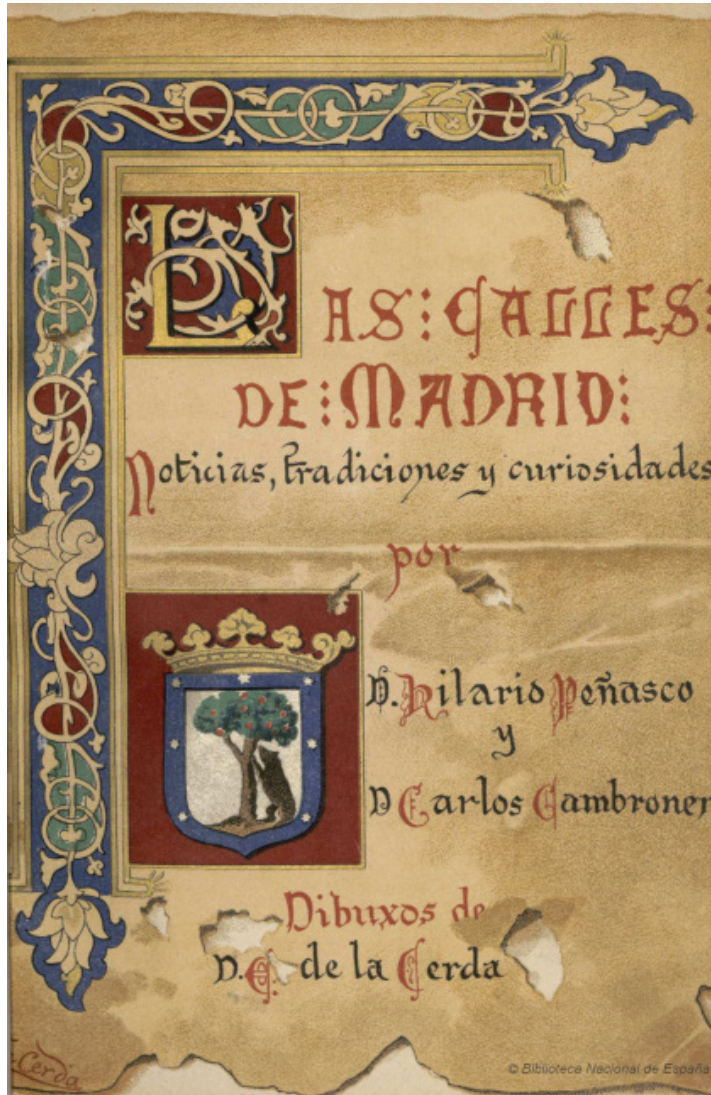 LAS: CALLES:
DE: MADRID:
Noticias, tradiciones y curiosidades
por
D. Hilario Peñasco
y
D Carlos Cambroner
Dibuxos de
D. E. de la Cerda
Cerda
© Biblioteca Nacional de España